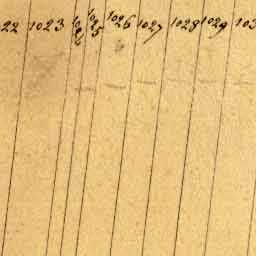 22 1023 1024 1025 1026 1027 1028 1029 103